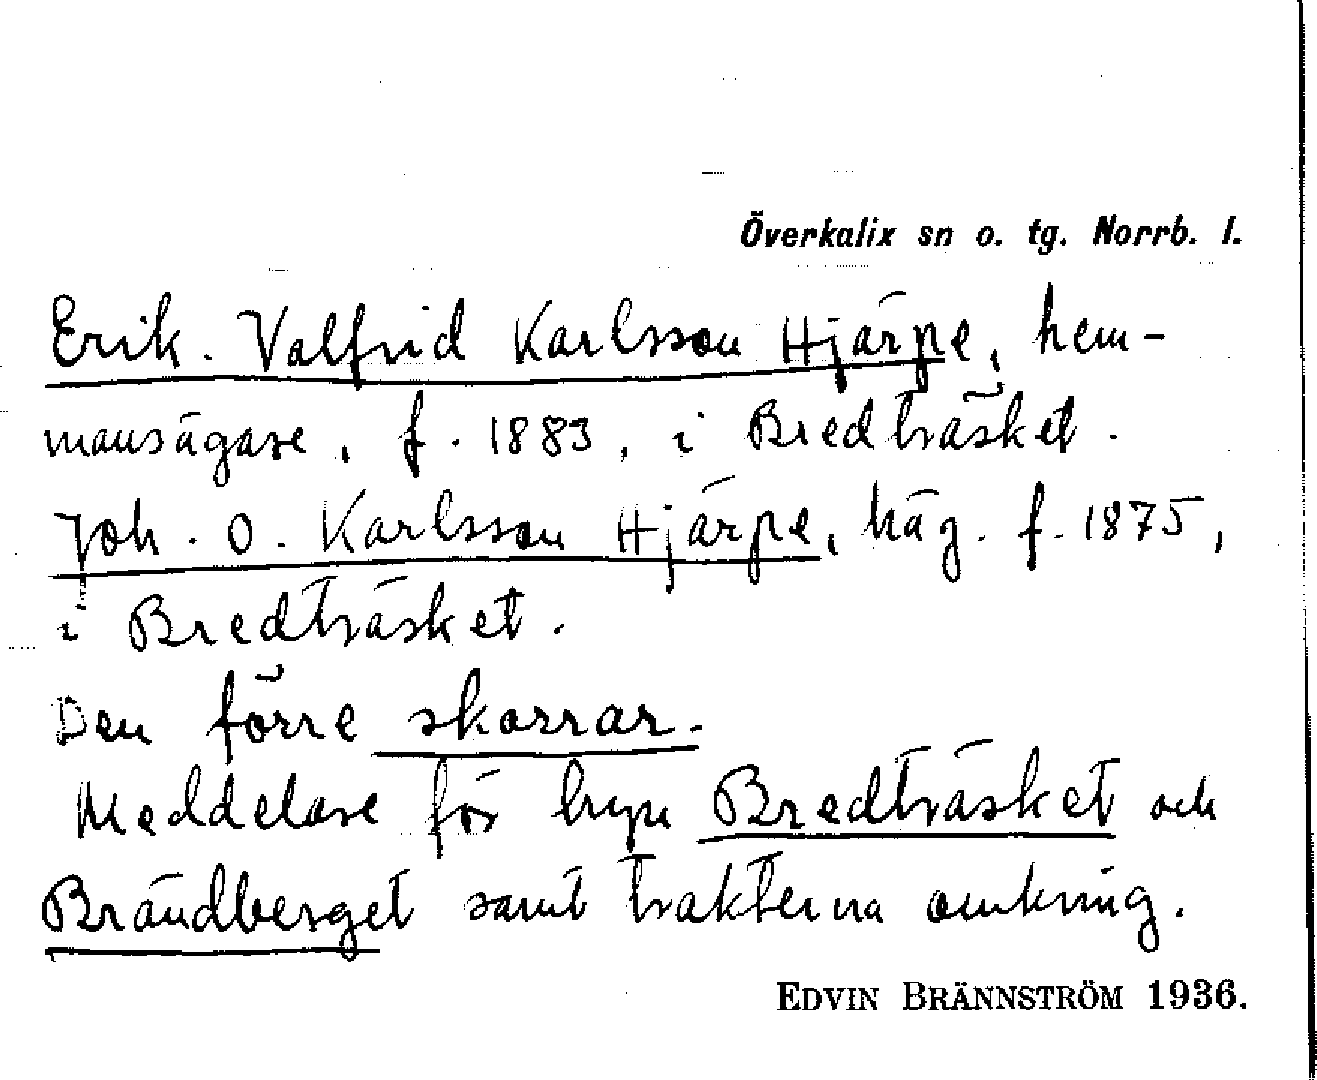 Överkalix sn o. tg. Norrb. l.
Erik. Valfrid Karlsson Hjärpe, hem-
mansägare, f. 1883, i Bredträsket.
Joh. O. Karlsson Hjärpe, häg. f. 1875,
i Bredträsket.
Den förre skorrar.
Meddelare för byn Bredträsket och
Brändberget samt trakterna omkring.
EDVIN BRÄNNSTRÖM 1936.